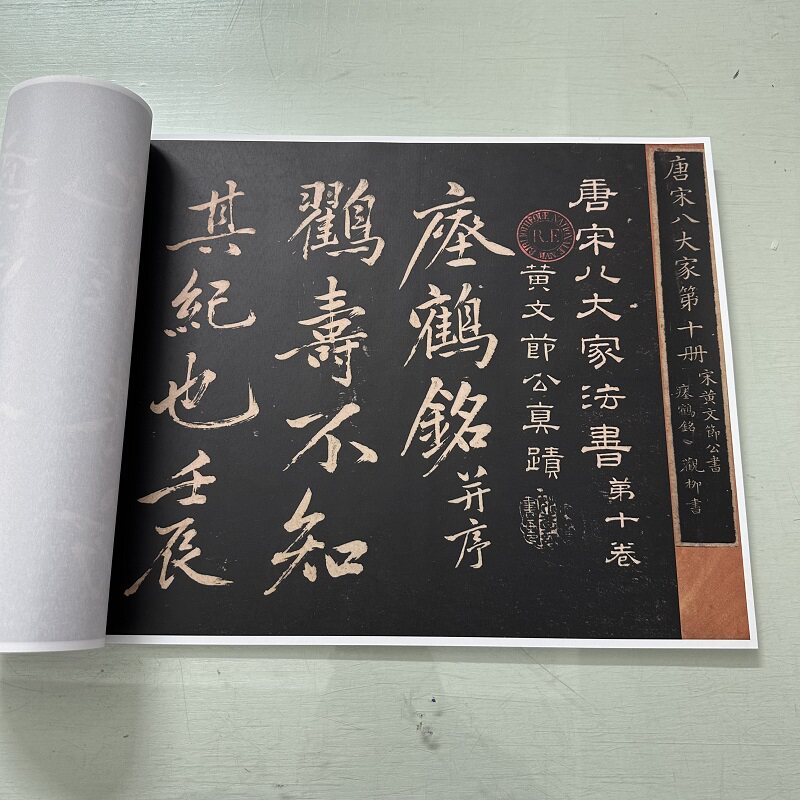 唐宋八大家第十册
宋黄文節公書
瘞鶴銘 觀柳書
唐宋八大家法書第十卷
BIBLIOTHÈQUE NATIONALE MAN.
R.F.
黄文節公真蹟
瘞鶴銘并序
鸖壽不知
其紀也壬辰